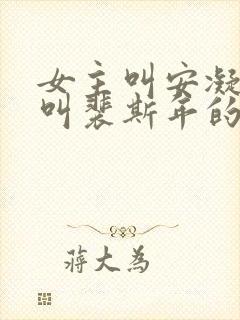 女主叫安凝
叫裴斯年的
蒋大为